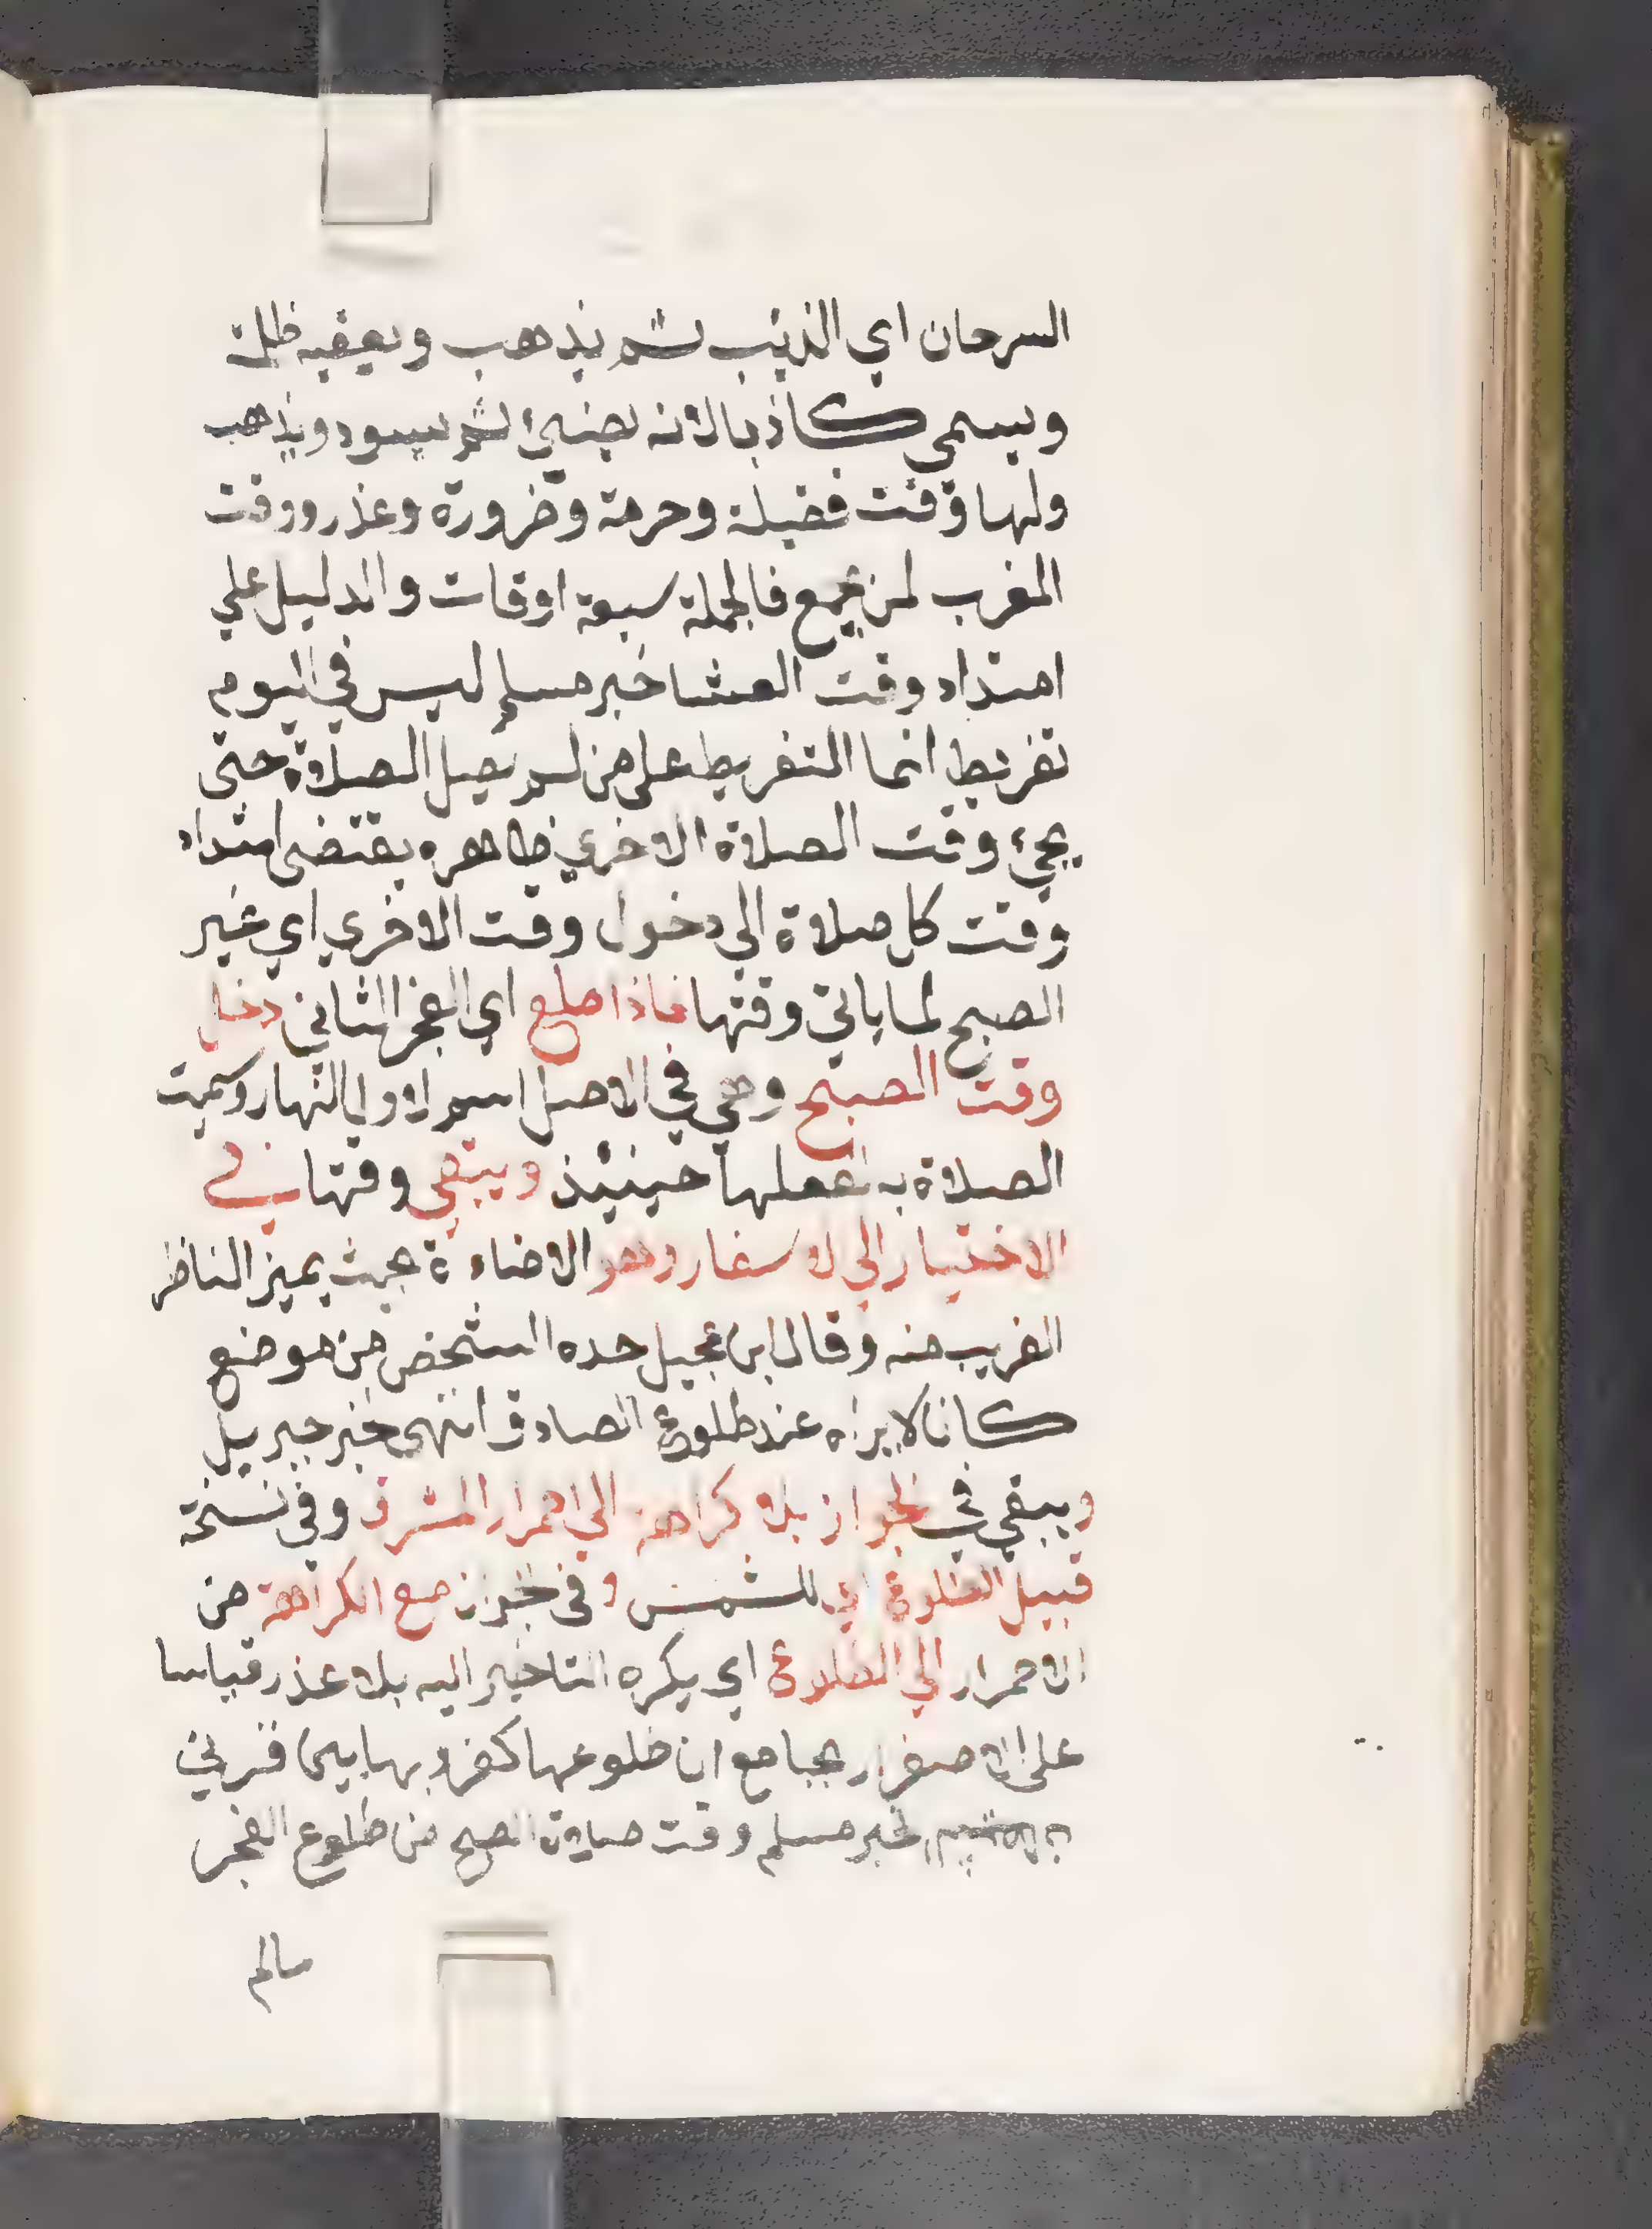 السرحان اي الذيب ثم يذهب ويعقبه ظلمة
ويسمي كاذبا لانه يضيئ ثم يسود ويذهب
ولها وقت فضيلة وحرمة وضرورة وعذر ووقت
المغرب لمن يجمع فالجملة سبعة اوقات والدليل علي
امتداد وقت العشا خبر مسلم ليس في اليوم
تفريط انما التفريط على من لم يصل الصلاة حتى
يجيء وقت الصلاة الاخري ظاهره يقتضى امتداد
وقت كل صلاة الي دخول وقت الاخري اي غير
الصبح لما ياتي وقتها فاذا طلع اي الفجر الثاني دخل
وقت الصبح وهي في الاصل اسم لاول النهار وسميت
الصلاة به لفعلها حينيذ ويبقي وقتها في
الاختيار الي الاسفار وهو الاضاءة بحيث يميز الناظر
القريب منه وقال ابن عجيل حده الشخص من موضع
كان لا يراه عند طلوع الصادق انتهى خبر جبريل
ويبقي في الجواز بلا كراهة الي احمرار المشرق وفي نسخة
قبيل الطلوع اي للشمس وفي الجواز مع الكراهة من
الاحمرار الي الطلوع اي يكره التاخير اليه بلا عذر قياسا
على الاصفرار بجامع ان طلوعها كغروبها بين قرني
لخبر مسلم وقت صلاة الصبح من طلوع الفجر
مالم